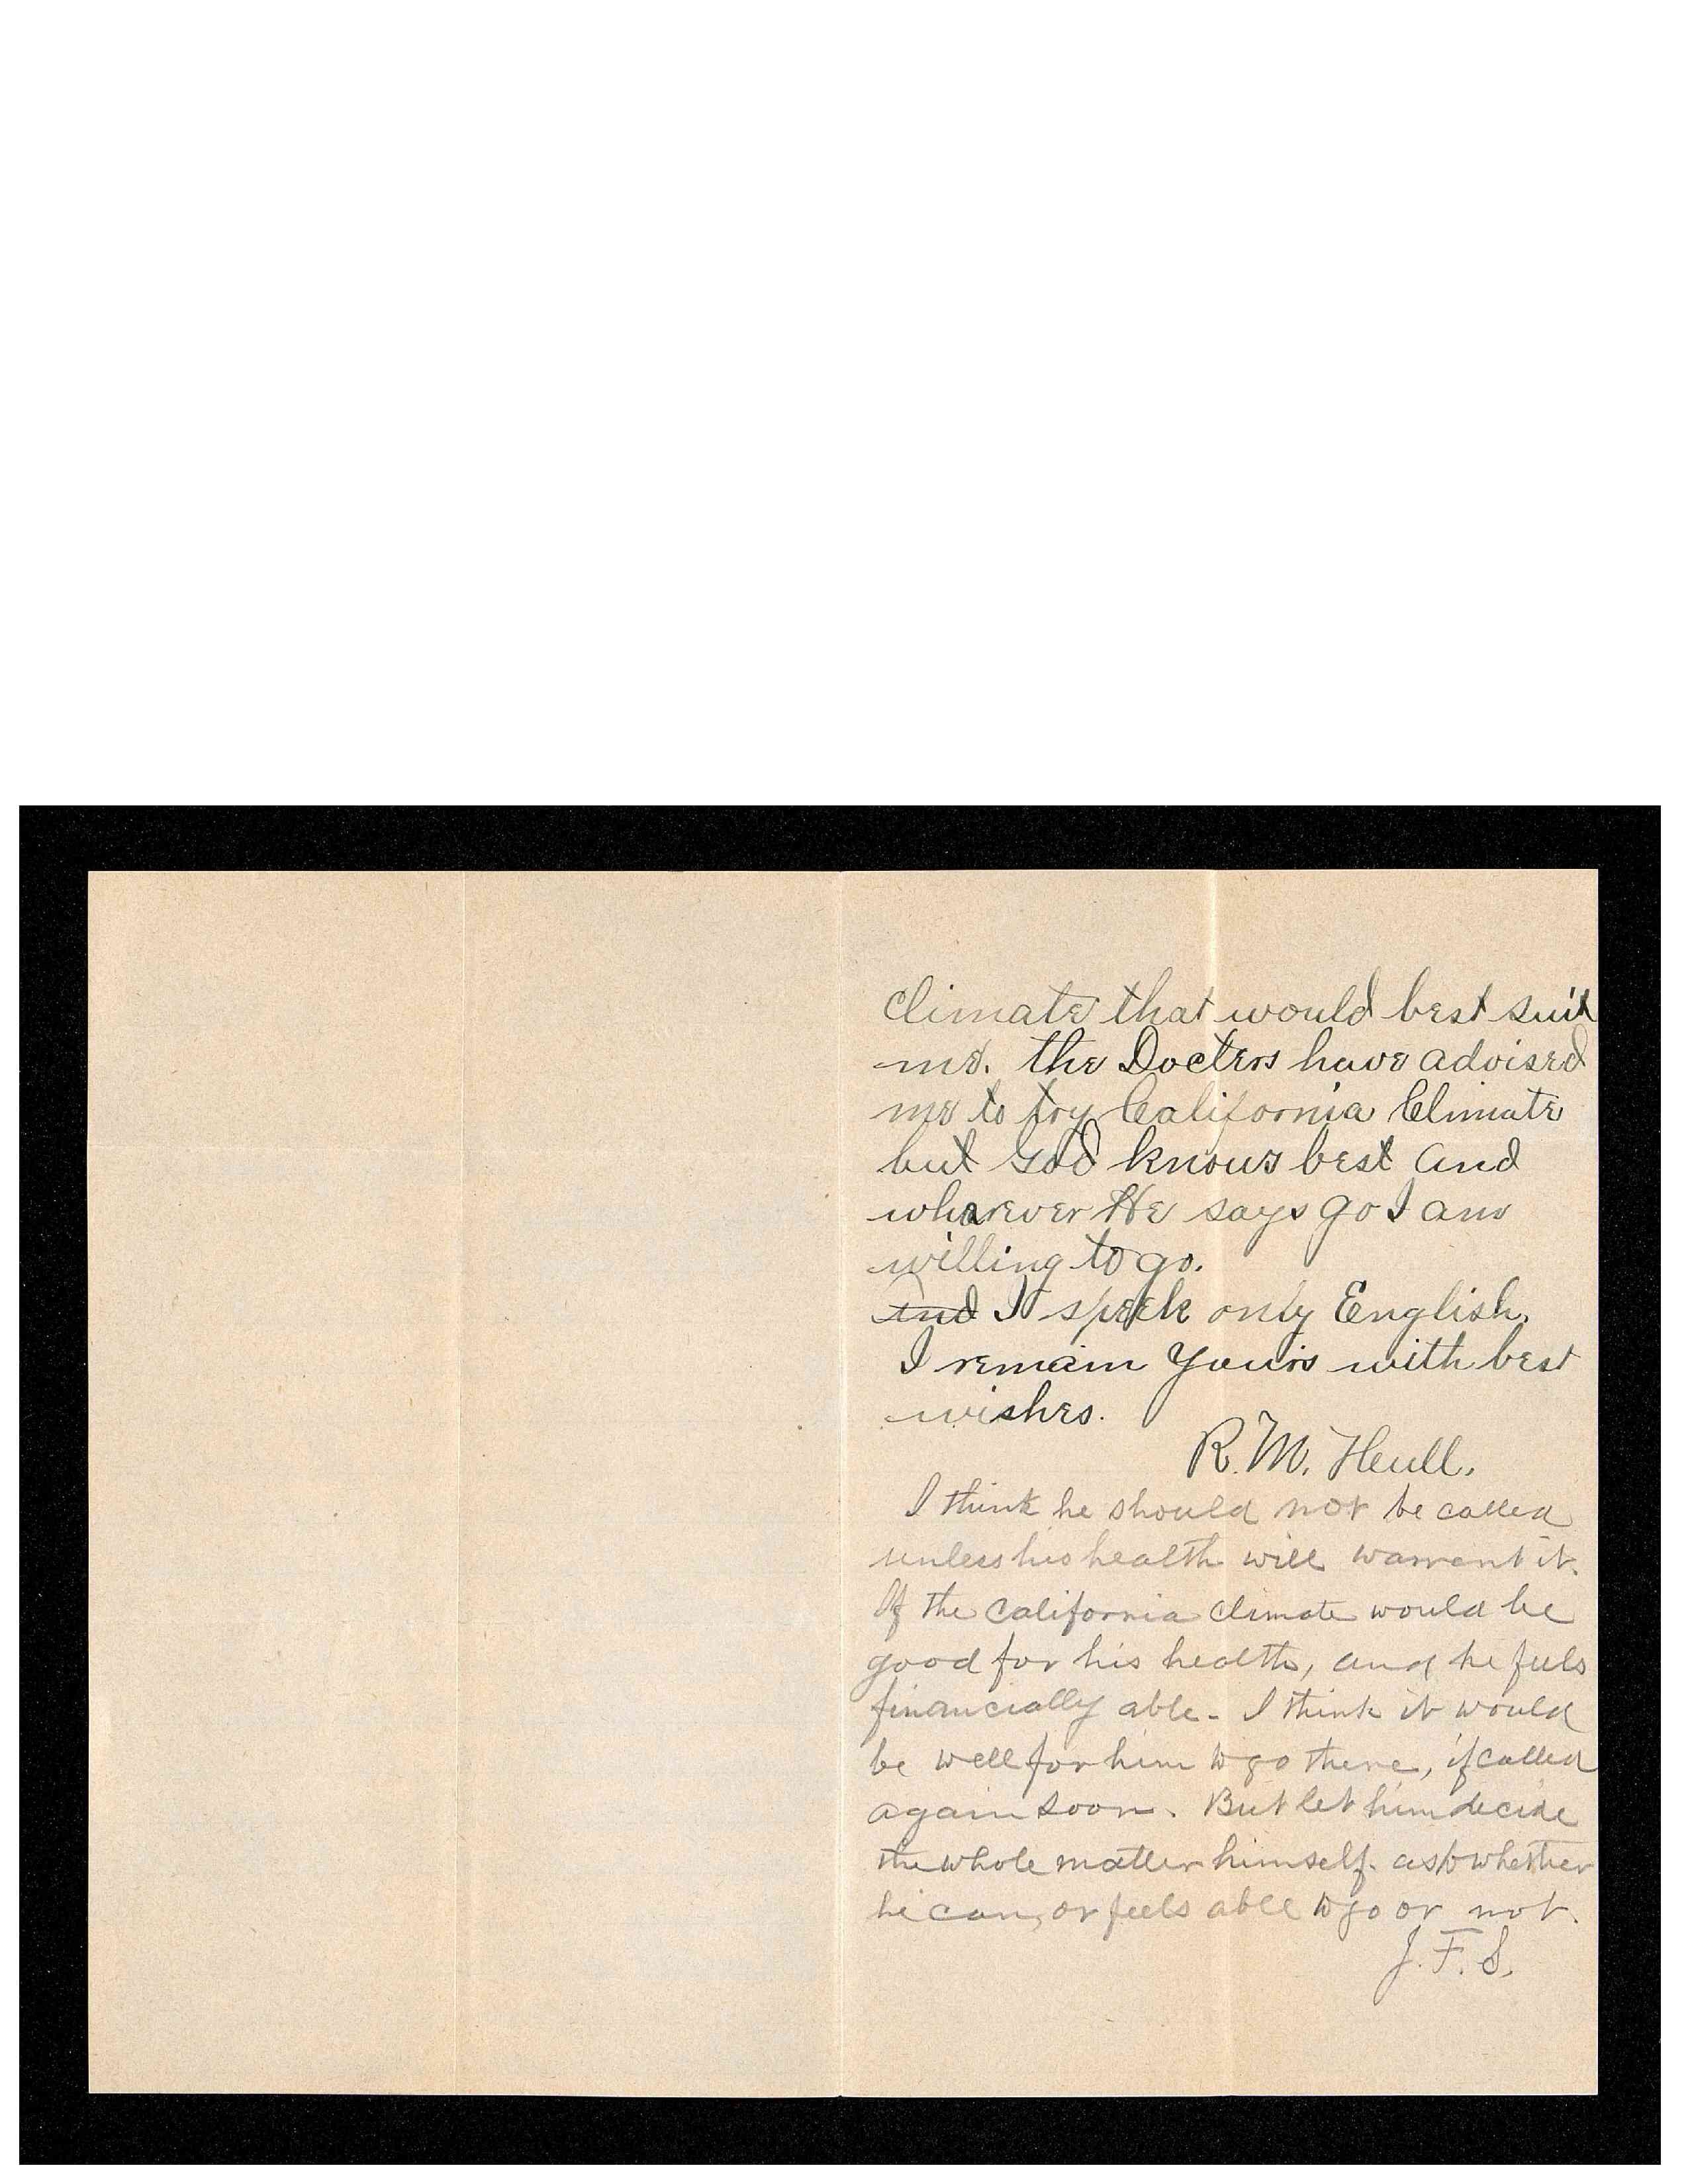 Climate that would best suit
me. the Docters have advised
me to try California Climate
but God knows best and
wharever He says go I am
willing to go.
and I speek only English.
I remain Yours with best
wishes.
R. M. Heull.
I think he should not be called
unless his health will warrent it.
If the California climate would be
good for his health, and he feels
financially able - I think it would
be well for him to go there, if called
again soon. But let him decide
the whole matter himself. as to whether
he can, or feels able to go or not.
J. F. S.